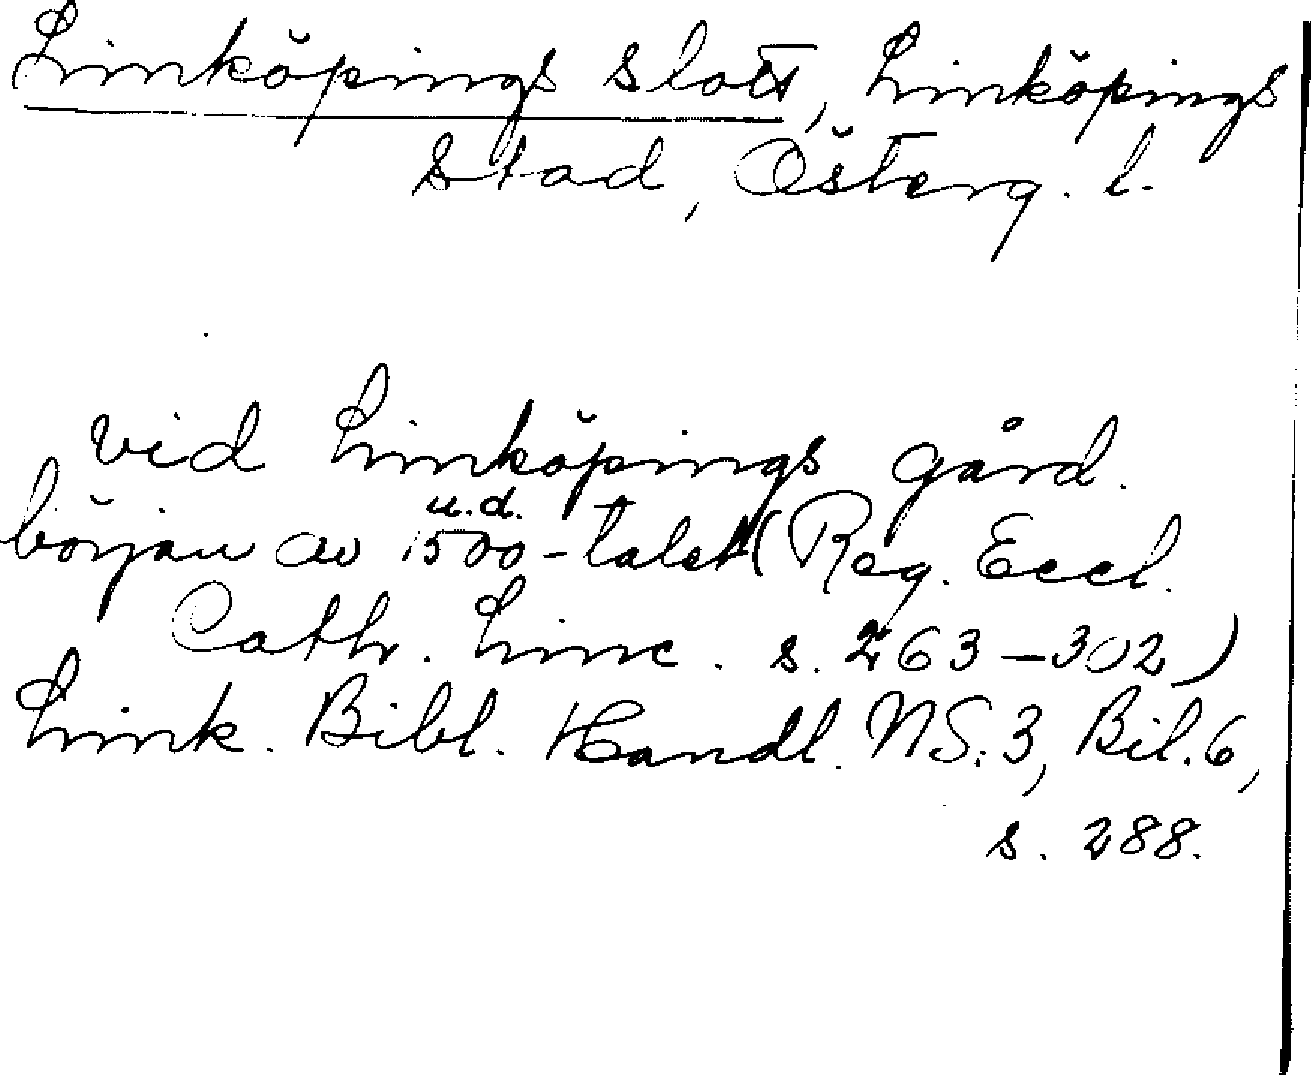 Linköpings slott, Linköpings
stad, Österg. l.
vid Linköpings gård.
u.d.
början av 1500-talet (Reg. Eccl.
Cath. Linc. s. 263-302)
Link. Bibl. Handl. NS:3, Bil.6,
s. 288.